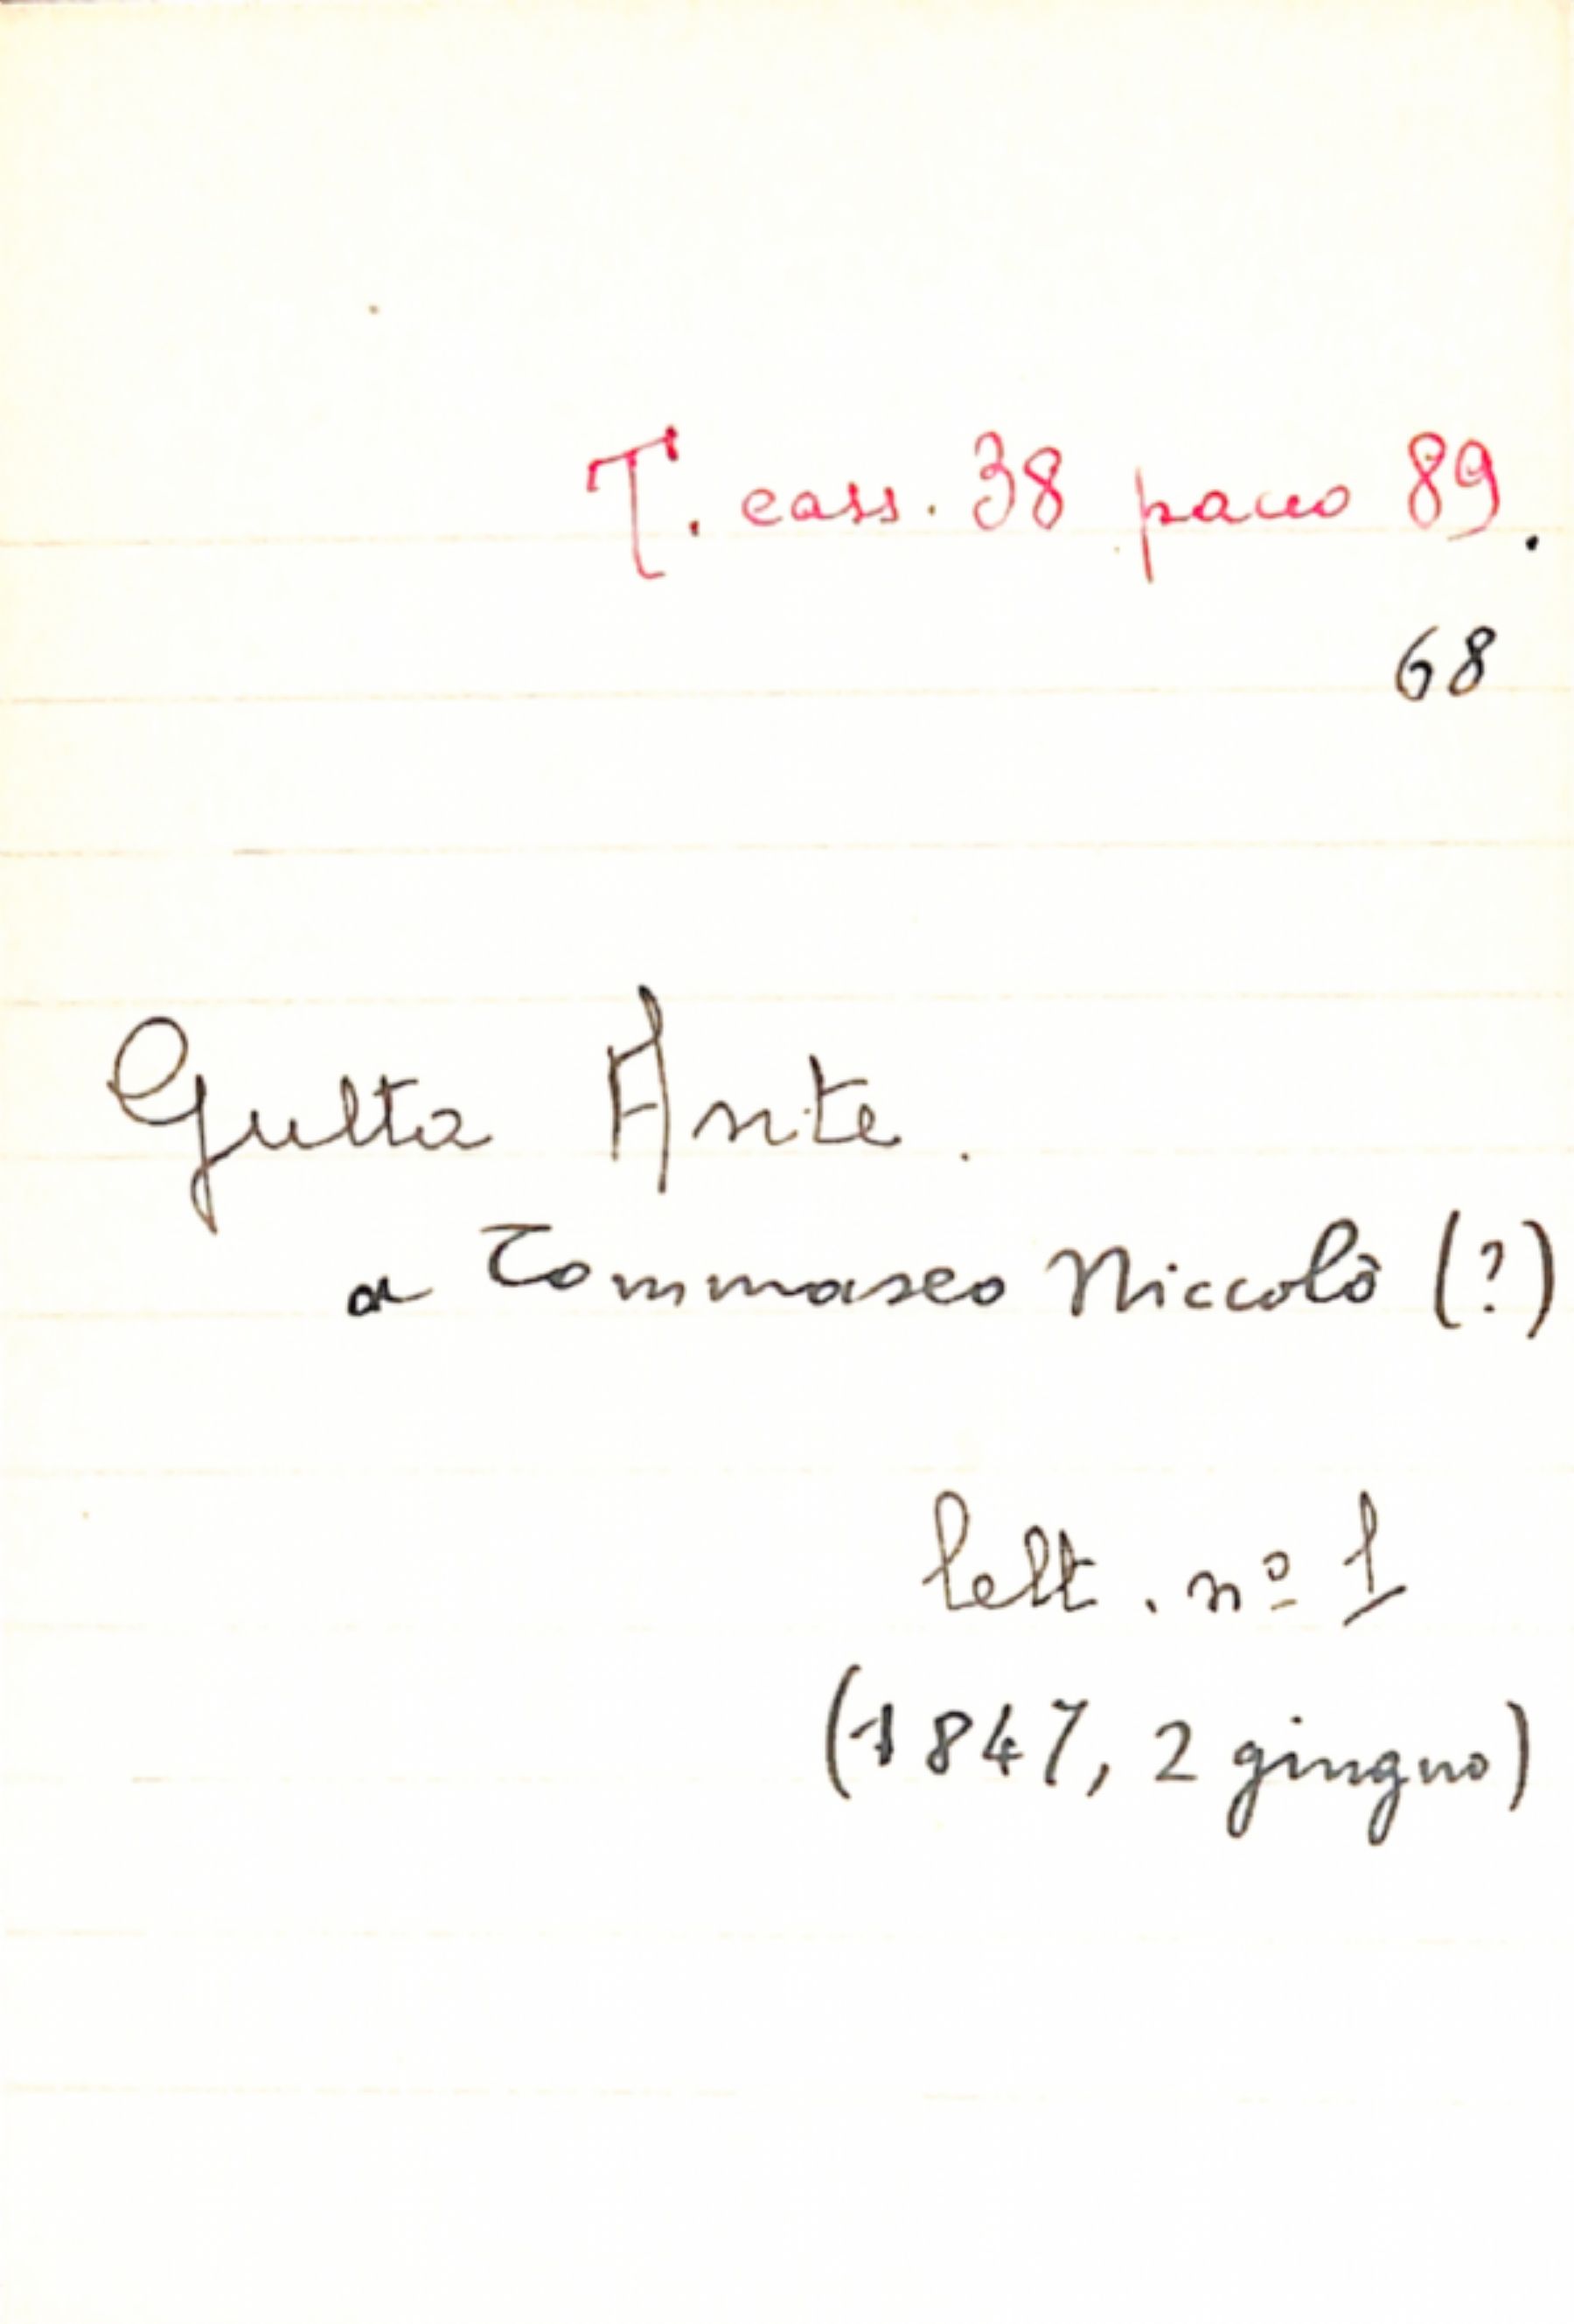 T. cass. 38 pacco 89.
68
Gulta Ante.
a Tommaseo Niccolò (?)
lett. nº 1
(1847, 2 giugno)